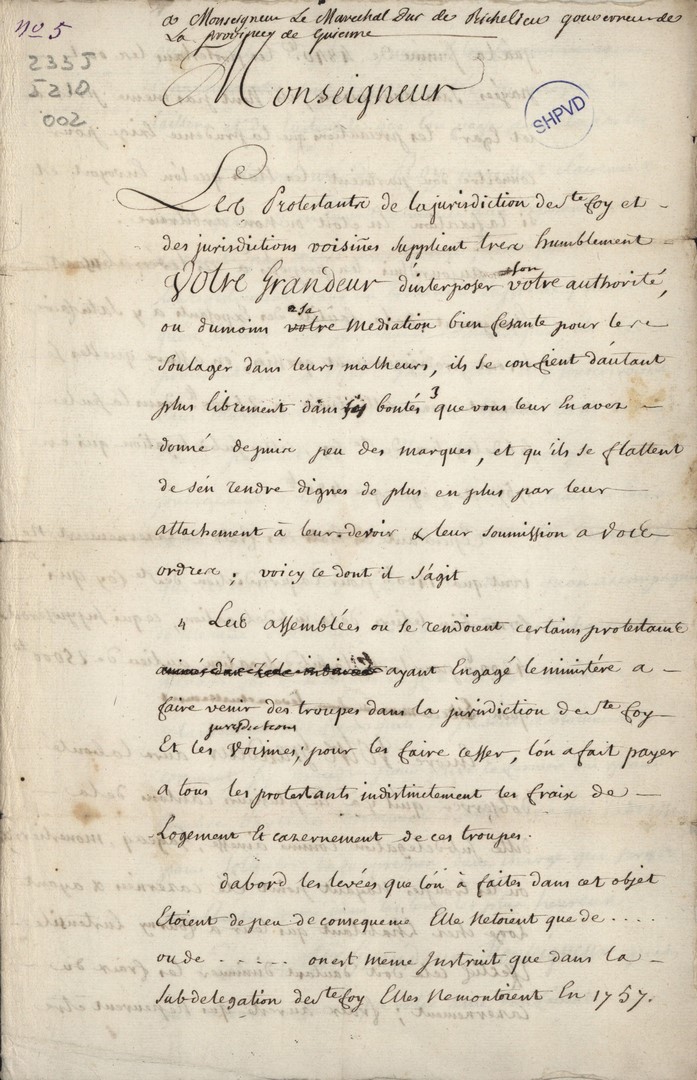 No 5
2355
5210
002
a Monseigneur Le Marechal Duc de Richelieu gouverneur de
La province de Guienne
Monseigneur
SHPVD
Les Protestants de la jurisdiction de Ste foy et
des jurisdictions voisines supplient tres humblement
Votre Grandeur d'interposer son votre authorité,
ou du moins sa votre mediation bien fesante pour les
soulager dans leurs malheurs, ils se confient d'autant
plus librement dans ses bontés 3 que vous leur En avez
donné depuis peu des marques, et qu'ils se flattent
de s'en rendre dignes de plus en plus par leur
attachement à leur devoir & leur soumission a vos
ordres ; voicy ce dont il s'agit
4 Les assemblées ou se rendoient certains protestants
ayant Engagé le ministére a
faire venir des troupes dans la jurisdiction de Ste foy
jurisdictions
Et les Voisines, pour les faire cesser, l'on a fait payer
a tous les protestants indistinctement les fraix de
Logement Et cazernement de ces troupes.
dabord les levées que l'on à faites dans cet objet
Etoient de peu de consequence Elle Netoient que de ....
ou de ..... on est même Instruit que dans la
Subdelegation de Ste foy Elles Ne montoient En 1757.